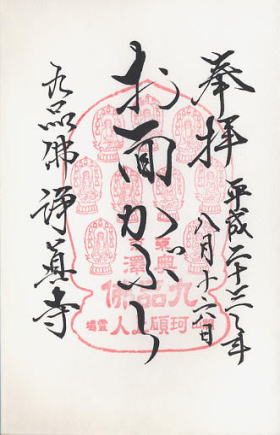 奉拝
平成二十三年
八月十六日
お面かぶり
九品佛 淨眞寺
東京
奥澤
九品佛
珂碩上人
靈場